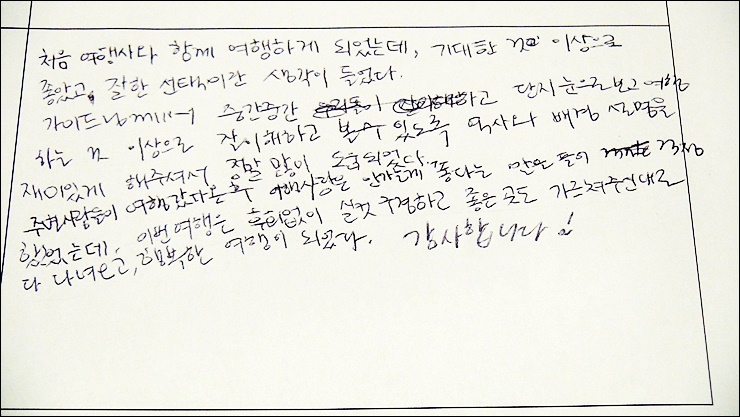 처음 여행사랑 함께 여행하게 되었는데, 기대한 것 이상으로
좋았고, 잘한 선택이란 생각이 들었다.
가이드님께서 중간중간 하고 단지 눈으로 보고 여행
하는 것 이상으로 잘 이해하고 볼 수 있도록 역사와 배경 설명을
재미있게 해주셔서 정말 많이 도움되었다.
주변사람들이 여행갔다온 후 여행사랑은 안가는게 좋다는 말을 들어 걱정
했었는데, 이번 여행은 후회없이 실컷 구경하고 좋은 곳도 가르쳐주신대로
다 다녀오고, 행복한 여행이 되었다. 감사합니다!